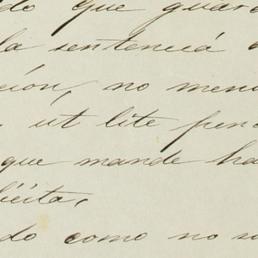 do que guar
la sentenciá
ción, no men
ut lite pen
que mande ha
licita,
do como no s